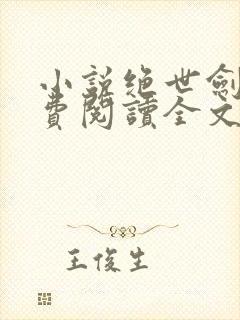 小說絶世劍
費閱讀全文
王俊生